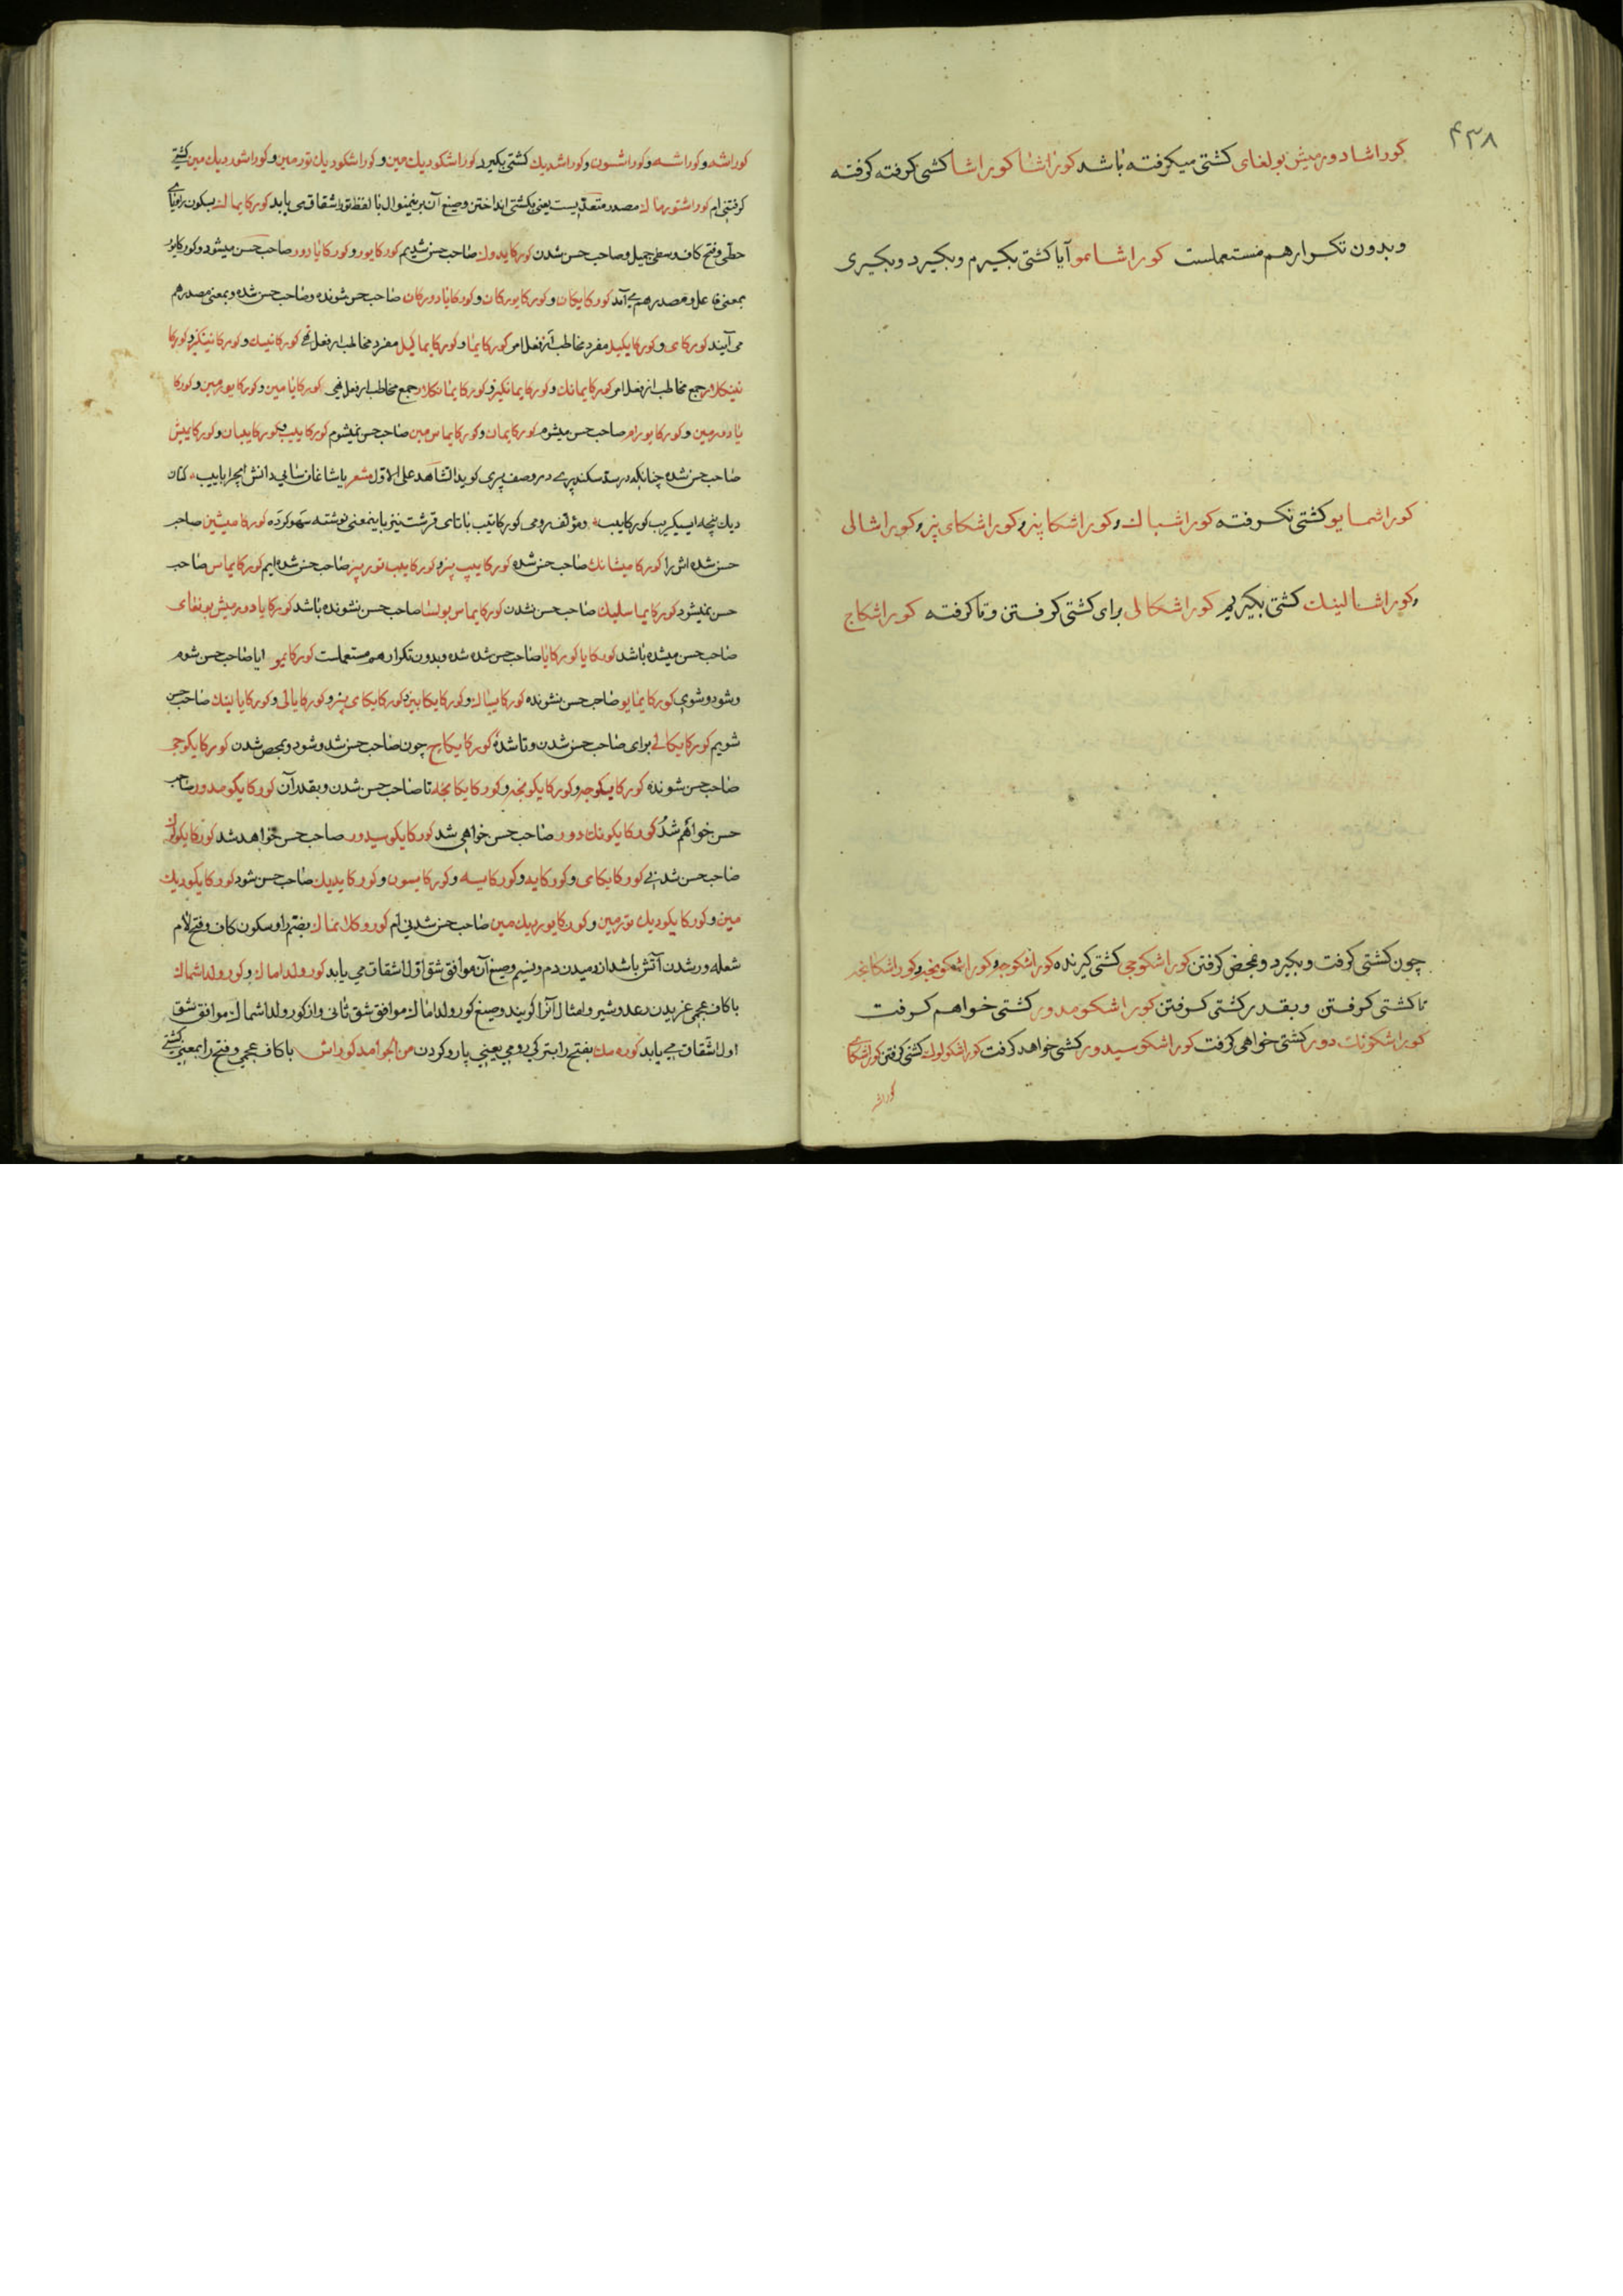 ۴۳۸
کوراشا دورمیش بولغای کشتی میکرفته باشد کوراشا کوراشا کشتی کرفته کرفته
وبدون تکرار هم مستعملست کوراشامو آیا کشتی بکیرم وبکیرد وبکیری
کوراشمایو کشتی نکرفته کوراشباك وکوراشکا پنر وکوراشکای پنر وکوراشالی
وکوراشالینك کشتی بکیریم کوراشکالی برای کشتی کرفتن وتا کرفته کوراشکاج
چون کشتی کرفت وبکیرد وبمحض کرفتن کوراشکوجی کشتی کیرنده کوراشکوجه وکوراشکونجه وکوراشکانجه
تا کشتی کرفتن وبقدر کشتی کرفتن کوراشکومدور کشتی خواهم کرفت
کوراشکونك دور کشتی خواهی کرفت کوراشکوسیدور کشتی خواهد کرفت کوراشکولوك کشتی کرفتن کوراشکای
کوراشه
کوراشد وکوراشه وکوراشسون وکوراشدیك کشتی بکیرد کوراشکودیك مین وکوراشکودیك تورمین وکوراشوردیك مین کشتی
کرفتنی ام کوراشتورماك مصدر متعدیست یعنی بکشتی انداختن وصیغ آن برینمنوال با لفظ تور اشتقاق می یابد کورکایماك بسکون را ویای
حطی وفتح کاف وسطی جمیل وصاحب حسن شدن کورکایدوك صاحب حسن شدیم کورکایور وکورکایا دور صاحب حسن میشود وکورکایور
بمعنی فاعل ومصدر هم می آمد کورکایکان وکورکایورکان وکورکایادورکان صاحب حسن شونده وصاحب حسن شده وبمعنی مصدر هم
می آیند کورکای وکورکایکیل مفرد مخاطب از فعل امر کورکایما وکورکایماکیل مفرد مخاطب از فعل نهی کورکاینك وکورکاینکیز وکورکا
ینکلار جمع مخاطب از فعل امر کورکایمانك وکورکایمانکیز وکورکایمانکلار جمع مخاطب از فعل نهی کورکایامین وکورکایورمین وکورکا
یادورمین وکورکایورام صاحب حسن میشوم کورکایمان وکورکایماس مین صاحب حسن نمیشوم کورکاییب وکورکاییبان وکورکامیش
صاحب حسن شده چنانکه در سد سکندری در وصف پری کوید الشاهد علی الاول شعر یاشاغان سایی دانش ایچرا باییب کتان
دیك پنجه ایسکیریب کورکاییب ومؤلف رومی کورکاتیب با تای قرشت نیز باینمعنی نوشته سهو کرده کورکامیشین صاحب
حسن شده اش را کورکامیشانك صاحب حسن شده کورکاییب پنر وکورکاییب توربیز صاحب حسن شده ایم کورکایماس صاحب
حسن نمیشود کورکایماسلیك صاحب حسن نشدن کورکایماس بولسا صاحب حسن نشونده باشد کورکایا دورمیش بولغای
صاحب حسن میشده باشد کورکایا کورکایا صاحب حسن شده شده وبدون تکرار هم مستعملست کورکایمو ایا صاحب حسن شوم
وشود وشوی کورکایمایو صاحب حسن نشونده کورکایباك وکورکایکا بیز وکورکایکای پنر وکورکایالی وکورکایالینك صاحب حسن
شویم کورکایکالی برای صاحب حسن شدن وتا شده کورکایکاج چون صاحب حسن شد وشود وبمحض شدن کورکایکوجی
صاحب حسن شونده کورکایکوجه وکورکایکونجه وکورکایکانجه تا صاحب حسن شدن وبقدر آن کورکایکومدور صاحب
حسن خواهم شد کورکایکونك دور صاحب حسن خواهی شد کورکایکوسیدور صاحب حسن خواهد شد کورکایکولوك
صاحب حسن شدنی کورکایکای وکورکاید وکورکایسه وکورکایسون وکورکایدیك صاحب حسن شود کورکایکودیك
مین وکورکایکودیك تورمین وکورکایوردیك مین صاحب حسن شدنی ام کوروکلانماك بضم را وسکون کاف وفتح لام
شعله ور شدن آتش باشد از دمیدن دم ونسیم وصیغ آن موافق شق اول اشتقاق می یابد کورولداماك وکورولداشماك
با کاف عجمی غریدن رعد وشیر وامثال آنرا کویند وصیغ کورولداماك موافق شق ثانی واز کورولداشماك موافق شق
اول اشتقاق می یابد کوره مك بفتح را بترکی رومی یعنی پارو کردن من الجوامد کوراش با کاف عجمی وفتح را بمعنی کشتی